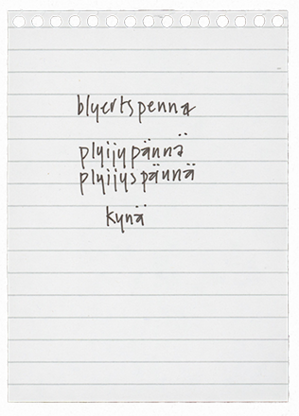 blyertspenna
plyijypännä
plyijyspännä
kynä